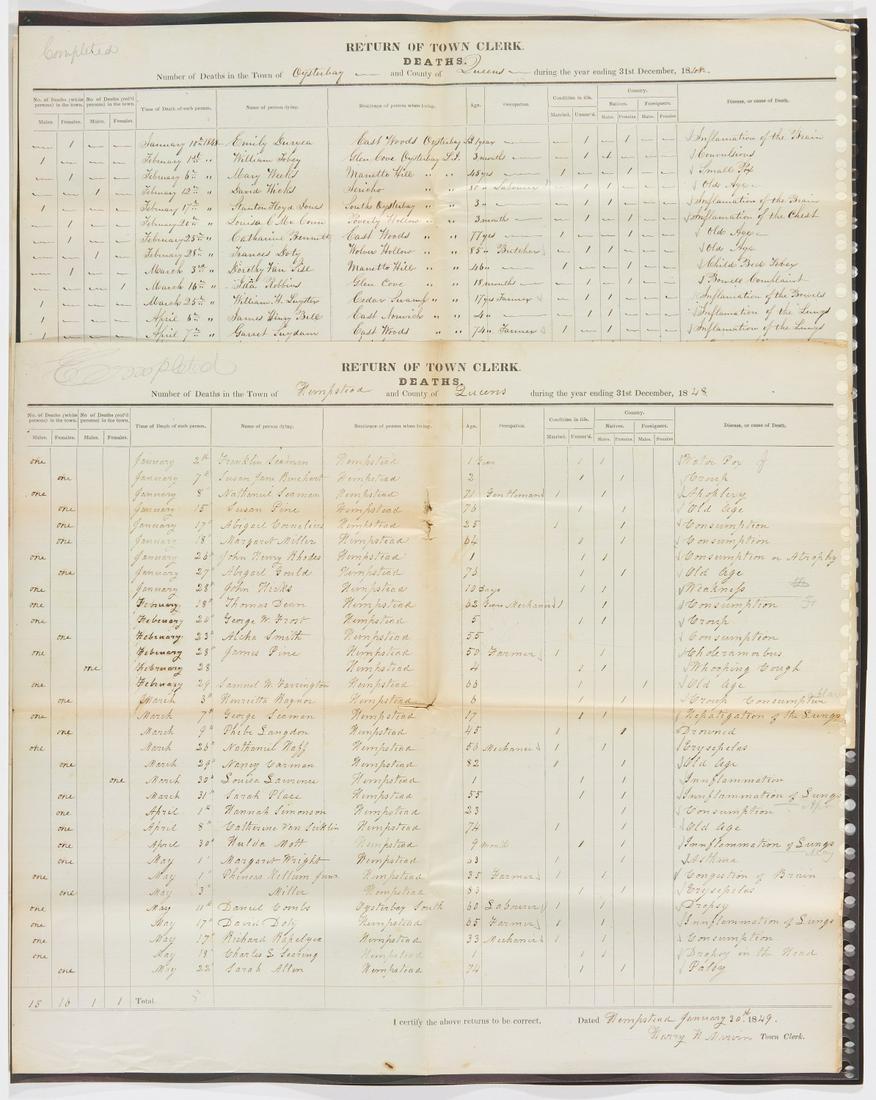 Completed
RETURN OF TOWN CLERK.
DEATHS.
Number of Deaths in the Town of Oysterbay and County of Queens during the year ending 31st December, 1848.
No. of Deaths (white persons) in the town. No. of Deaths (col'd persons) in the town. Time of Death of each person. Name of person dying. Residence of person when living. Age. Occupation. Condition in life. Country. Disease, or cause of Death.
Natives. Foreigners.
Males. Females. Males. Females. Married. Unmar'd. Males. Females Males. Females
1 January 10th 1848 Emily Duryea East Woods Oysterbay L.I. 1 year 1 1 Inflamation of the Brain
1 February 1st " William Tobey Glen Cove Oysterbay L.I. 3 months 1 1 Convulsions
1 February 6th " Mary Weeks Manetto Hill " " 45 yrs 1 1 Small Pox
1 February 12th " David Hicks Jericho " " Labourer 1 1 Old Age
1 February 17th " Stanton Floyd Jones South Oysterbay " " 3 " 1 1 Inflamation of the Brain
1 February 20th " Louisa C. Mc Coun Poverty Hollow " " 3 month 1 1 Inflamation of the Chest
1 February 25th " Catharine Bennett East Woods " " 77 yrs 1 1 Old Age
1 February 28th " Frances Doty Wolver Hollow " " 85 " Butcher 1 1 Old Age
1 March 3rd " Dorothy Van Sise Manetto Hill " " 46 " 1 1 Child Bed Fever
1 March 16th " Robbins Glen Cove " " 18 months 1 1 Bowell Complaint
1 March 25th " William W. Luyster Cedar Swamp " " 17 yrs Farmer 1 1 Inflamation of the Bowels
1 April 6th " James Henry Bell East Norwich " " 4 " 1 1 Inflamation of the Lungs
1 April 7th " Garret Suydam East Woods " " 74 " Farmer 1 1 Inflamation of the Lungs
Completed
RETURN OF TOWN CLERK.
DEATHS.
Number of Deaths in the Town of Hempstead and County of Queens during the year ending 31st December, 1848.
No. of Deaths (white persons) in the town. No. of Deaths (col'd persons) in the town. Time of Death of each person. Name of person dying. Residence of person when living. Age. Occupation. Condition in life. Country. Disease, or cause of Death.
Natives. Foreigners.
Males. Females. Males. Females. Married. Unmar'd. Males. Females Males. Females
one January 2th Franklin Seaman Hempstead 1 1 1
one January 7th Susan Jane Hempstead 2 1 1 Croup
one January 8 Nathaniel Seaman Hempstead 71 Gentleman 1 1 Apoplexy
one January 15 Susan Pine Hempstead 76 1 1 Old Age
one January 17 Abigail Cornelius Hempstead 25 1 Consumption
one January 18 Margaret Miller Hempstead 64 1 1 Consumption
one January 26 John Henry Rhodes Hempstead 1 1 1 Consumption or Atrophy
one January 27 Abigail Gould Hempstead 73 1 1 Old Age
one January 28 John Hicks Hempstead 10 Days 1 1 Weakness
one February 18th Thomas Dean Hempstead 62 Mechanic 1 1 Consumption
one February 20 George W. Frost Hempstead 5 1 1 Croup
one February 23 Smith Hempstead 55 Consumption
one February 28 James Pine Hempstead 50 Farmer 1 1 Choleramorbus
one February 28 Hempstead 4 1 1 Whooping Cough
one February 29 Samuel W. Farrington Hempstead 66 1 1 Old Age
one March 3 Henrietta Raynor Hempstead 6 1 1 1 Croup Consumptive
one March 7 George Seaman Hempstead 17 1 1 Hepatigation of the Lungs
one March 9 Phebe Langdon Hempstead 45 1 1 Drowned
one March 26 Nathaniel Hempstead 56 Mechanic 1 1 Erysepelas
one March 29 Nancy Carman Hempstead 82 1 1 Old Age
one March 30 Louisa Lawrence Hempstead 1 1 1 Innflammation
one March 31 Sarah Place Hempstead 55 1 1 Innflammation of Lungs
one April 1 Hannah Simonson Hempstead 23 1 Consumption
one April 8 Catherine Van Hempstead 74 1 1 Old Age
one April 30 Hulda Mott Hempstead 9 Month 1 1 Innflammation of Lungs
one May 1 Margaret Wright Hempstead 63 1 1 Asthma
one May 1 Phineas Kellum Junr Hempstead 35 Farmer 1 1 Congestion of Brain
one May 3 Miller Hempstead 83 1 1 Erysepelas
one May 11 Daniel Combs Oysterbay South 60 Labourer 1 1 Dropsy
one May 17 David Doty Hempstead 65 Farmer 1 1 Innflammation of Lungs
one May 17 Richard Rapelyea Hempstead 33 Mechanic 1 1 Consumption
one May 18 Charles S. Seering Hempstead 1 1 1 Dropsy in the Head
one May 22 Sarah Allen Hempstead 74 1 1 Palsy
15 16 1 1 Total.
I certify the above returns to be correct, Dated Hempstead January 30th 1849.
Harry H. Marvin Town Clerk.